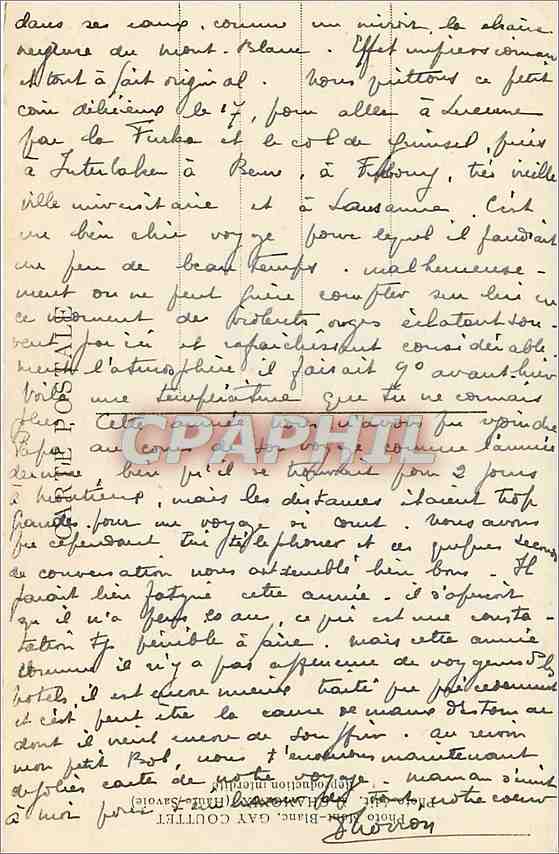 dans ses eaux, comme un miroir, la chaîne
neigeuse du Mont-Blanc. Effet
et tout à fait original. Nous quittons ce petit
coin délicieux le 17, pour aller à Lucerne
par la Furka et le col de Grimsel, puis
à Interlaken à Berne, à Fribourg, très vieille
ville universitaire et à Lausanne. C'est
un bien chic voyage pour lequel il faudrait
un peu de beau temps. malheureuse-
ment on ne peut guère compter sur lui en
ce moment de violents orages éclatant sou
vent par ici et rafraîchissant considérable
ment l'atmosphère il faisait 9° avant-hier
Voilà une température que tu ne connais
plus. Cette année nous n'avons pu rejoindre
Papa au cours de son voyage comme l'année
dernière, bien qu'il se trouvait pour 2 jours
à Montreux, mais les distances étaient trop
grandes pour un voyage si court. Nous avons
pu cependant lui téléphoner et ces quelques secondes
de conversation nous ont semblé bien bons. Il
paraît bien fatigué cette année. il s'aperçoit
qu'il n'a plus 20 ans, ce qui est une consta-
tation tjs pénible à faire. Mais cette année
comme il n'y a pas affluence de voyageurs ds les
hotels, il est encore mieux traité que précédemment
et c'est peut être la cause de maux d'estomac
dont il vient encore de souffrir. au revoir
mon petit Bob, nous t'enverrons maintenant
de jolies cartes de notre voyage. maman s'unit
à moi pour tout notre coeur
CARTE POSTALE
Photo Mont-Blanc, GAY COUTTET
Photo-Edit. CHAMONIX (Haute-Savoie)
Reproduction interdite
CPAPHIL